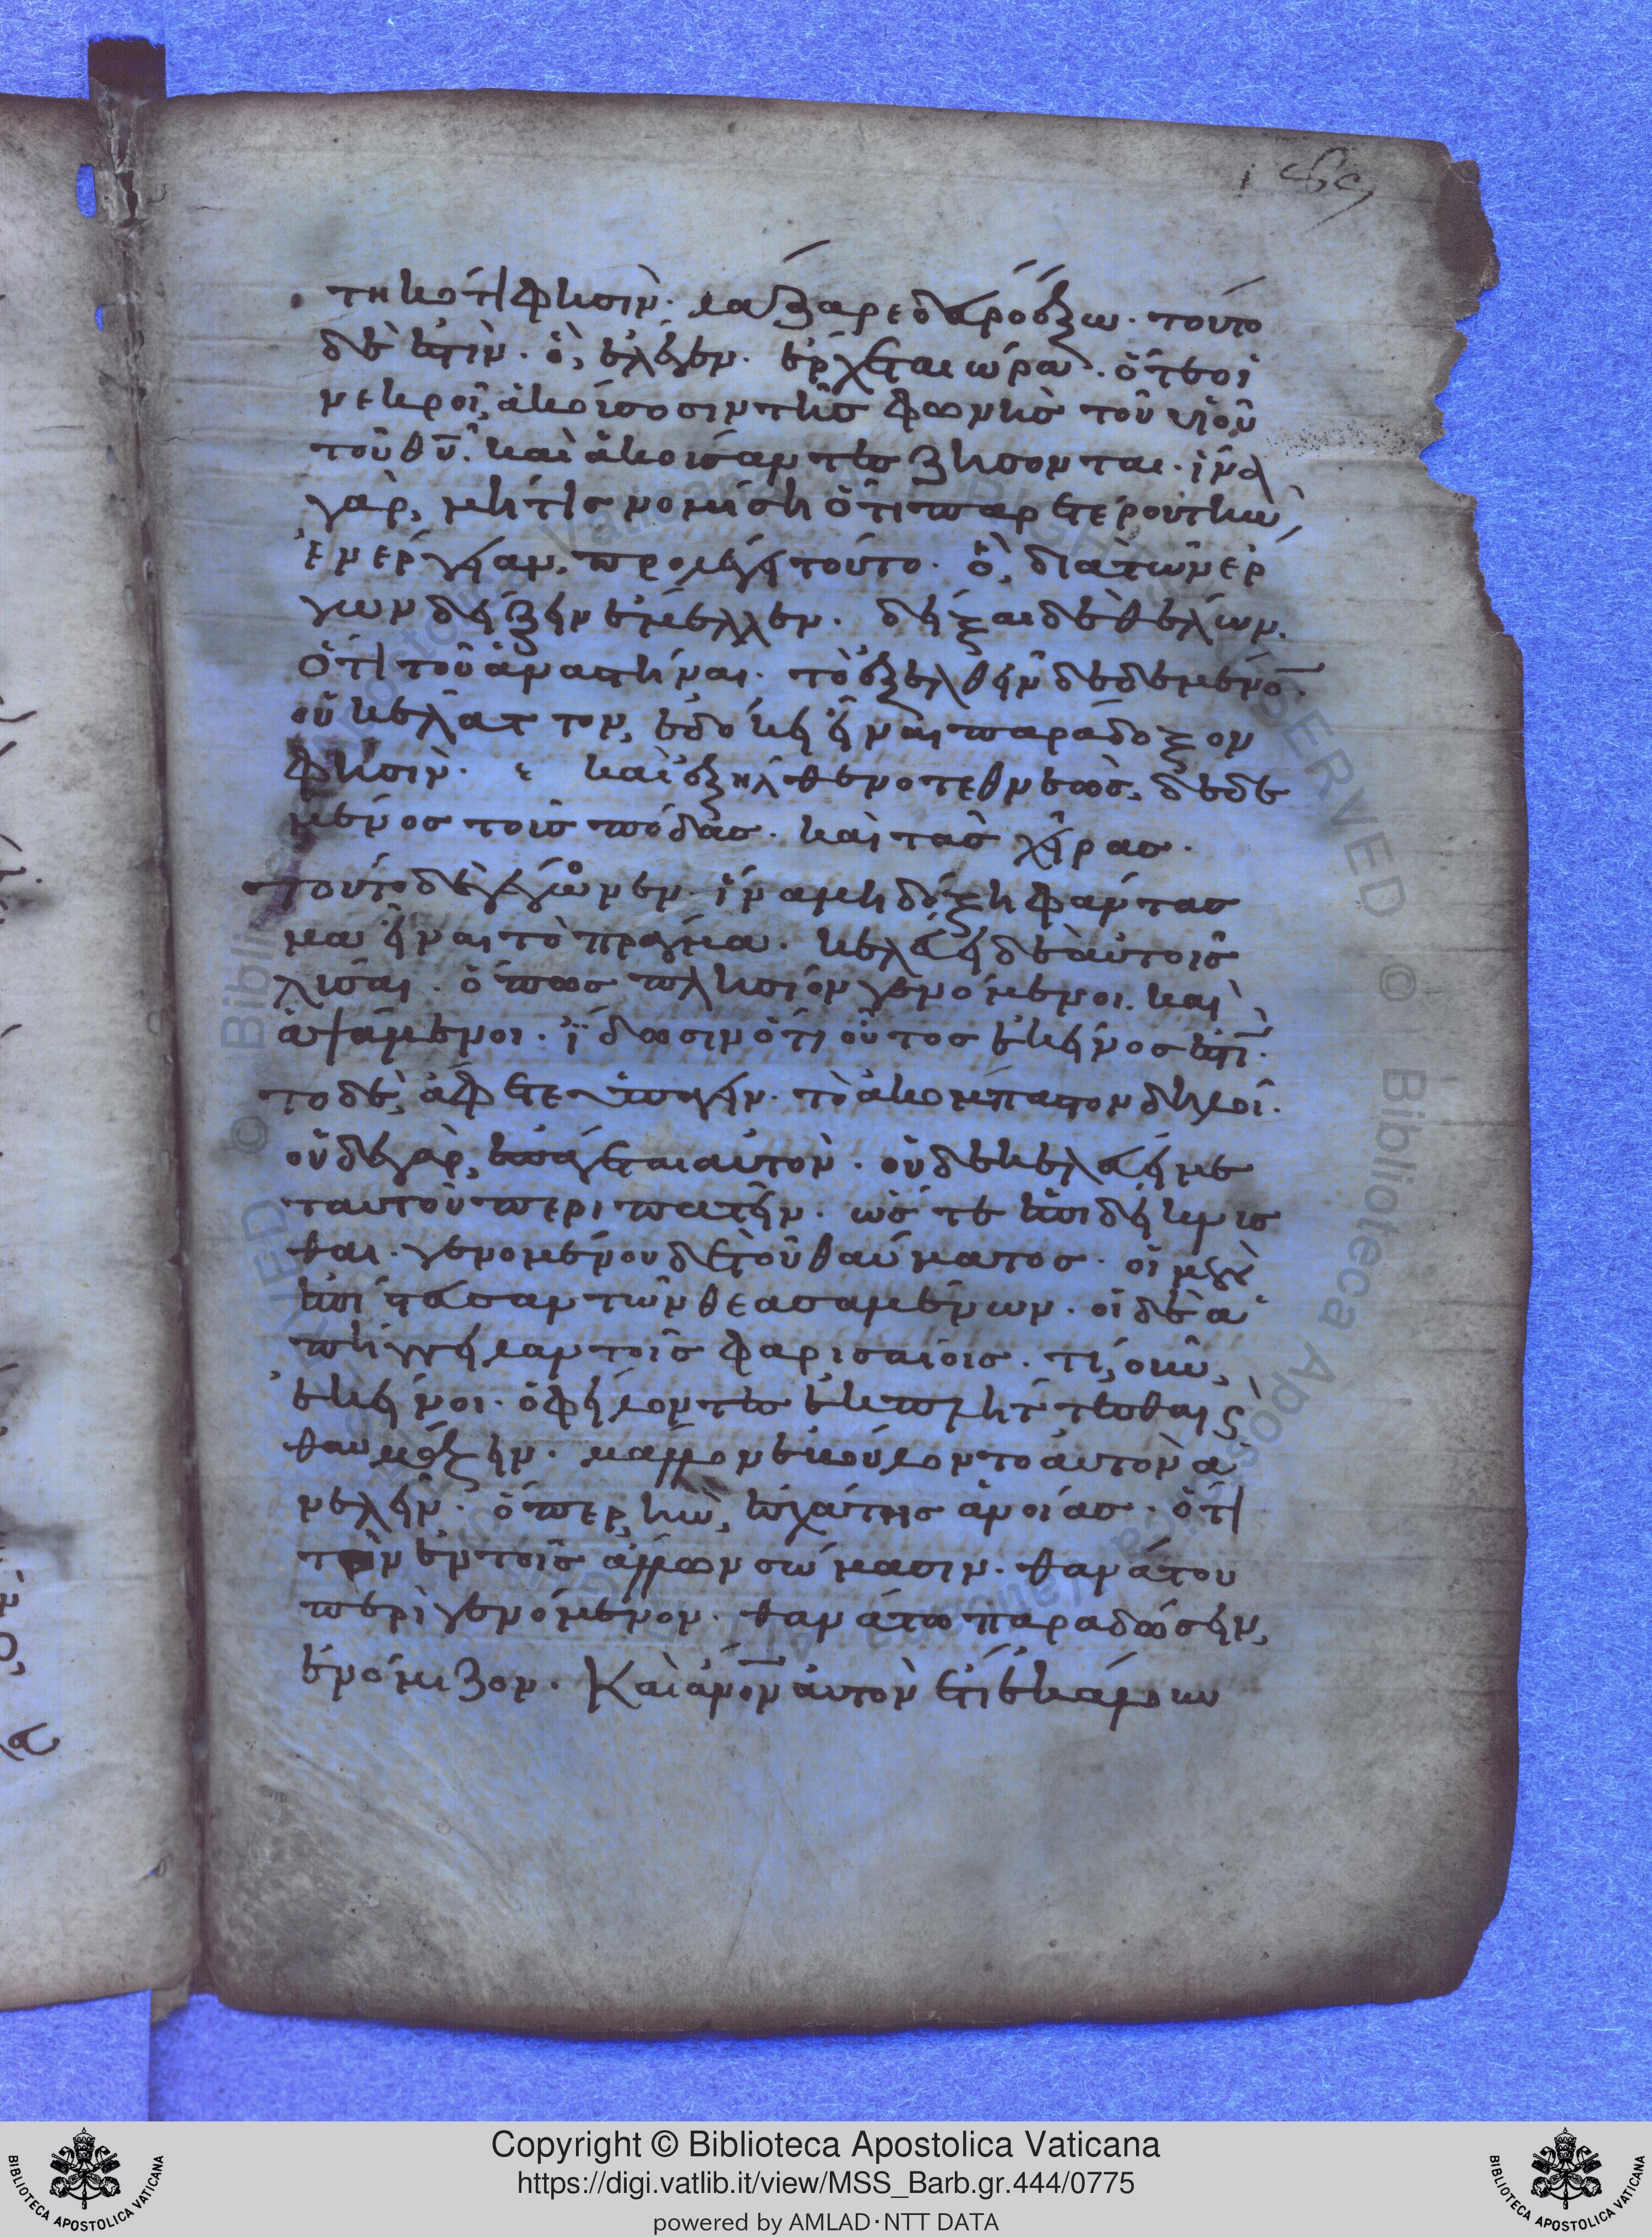 τηκότι φησὶν. λάζαρε δεῦρο ἔξω. τοῦτο
δὲ ἐστὶν. ὃ, ἔλεγεν. ἔρχεται ὥρα. ὅτε οἱ
νεκροὶ, ἀκούσοσιν τῆσ φωνῆσ τοῦ υἱοῦ
τοῦ θυ. καὶ ἀκούσαντεσ ζήσονται. ἵνα
γὰρ, μήτισ νομίση ὅτι παρ ετέρου τὴν
ἐνέργειαν, προλέγει τοῦτο. ὃ, διὰ τῶν ἔρ
γων δείξειν ἔμελλεν. δεῖξαι δὲ θέλων.
ὅτι τοῦ ἀναστῆναι. τὸ ἐξελθεῖν δεδεμένον.
οὐκ ἔλαττον, ἐδόκει εἶναι παράδοξον
φησὶν. καὶ ἐξῆλθεν ὁ τεθνεὼσ, δεδε
μένοσ τοὺσ πόδασ. καὶ τὰσ χεῖρασ.
τοῦτο δὲ γέγονεν. ἵνα μὴ δόξη φάντασ
μα εἶναι τὸ πρᾶγμα. κελεύει δὲ αὐτοῖσ
λῦσαι. ὅπωσ πλησίον γενόμενοι. καὶ
ἁψάμενοι. ἴδωσιν ὅτι οὗτοσ ἐκεῖνοσ ἐστὶ.
το δὲ, ἄφετε ὑπάγειν. τὸ ἀκόμπαστον δηλοῖ.
οὐδὲ γὰρ, ἐπάγεται αὐτὸν. οὐδὲ κελεύει με
τ αυτοῦ περιπατεῖν. ὥστε ἐπιδείκνυσ
θαι. γενομένου δὲ τοῦ θαύματοσ. οἱ μὲν
ἐπίστευσαν τῶν θεασαμένων. οἱ δὲ ἀ
πήγγειλαν τοῖσ φαρισαίοισ. τί, οὖν,
ἐκεῖνοι. ὀφείλοντεσ ἐκπλήττεσθαι καὶ
θαυμάζειν. μᾶλλον ἐβούλοντο αὐτὸν ἀ
νελεῖν. ὅπερ, ἦν, ἐσχάτησ ἀνοίασ. ὅτι
τὸν ἐν τοῖσ ἄλλων σώμασιν. θανάτου
περιγενόμενον. θανάτω παραδώσειν,
ἐνόμιζον. Καὶ ανον αὐτὸν ἔτι ἐκάλουν